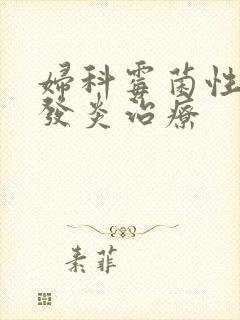 婦科霉菌性
發炎治療
素菲